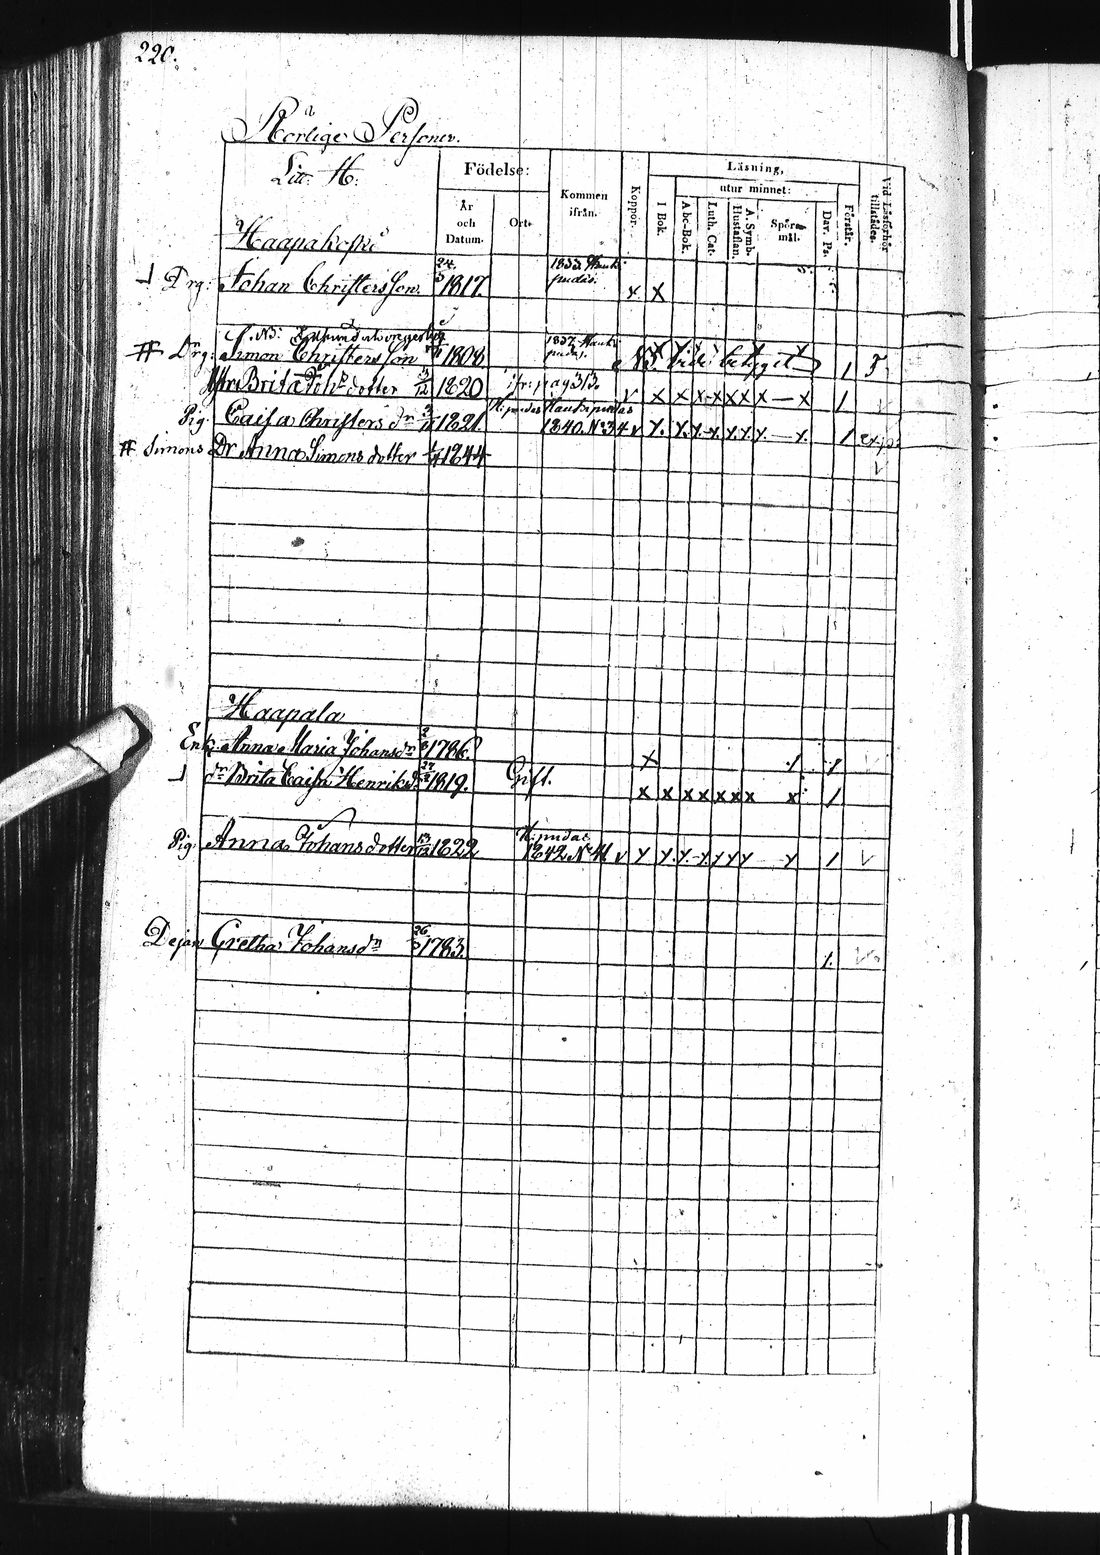 220.
Rörlige Personer.
Litt. H.
Födelse:
År och Datum.
Ort.
Kommen ifrån.
Koppor.
Läsning,
I Bok.
utur minnet:
Abc-Bok.
Luth. Cat.
A. Symb. Hustaflan.
Spörsmål.
Dav. Ps.
Förstår.
Vid Läsförhör tillstädes.
Haapakoski
Drg: Johan Christersson 24/3 1817. x x
NB:
# Drg: Simon Christersson 1808. 1837 NB. vide betyget 1
Hstr Brita Joh dotter 3/12 1820 ifr: pag 313. v x x x x x x x — x 1
Pig. Caisa Christers dr 1821. H:pudas Haukipudas 1840 No 34 v 1
# Simons Dr Anna Simons dotter 1844
Haapala
Enk. Anna Maria Johansdr 1786. x 1 1
dr Brita Caisa Henriksdr 1819. Gift. x x x x x x x x 1
Pig. Anna Johans dotter 13/12 1822 H:pudas 1842 No 41 v 1 v
Dejan Gretha Johansdr 1783. 1.